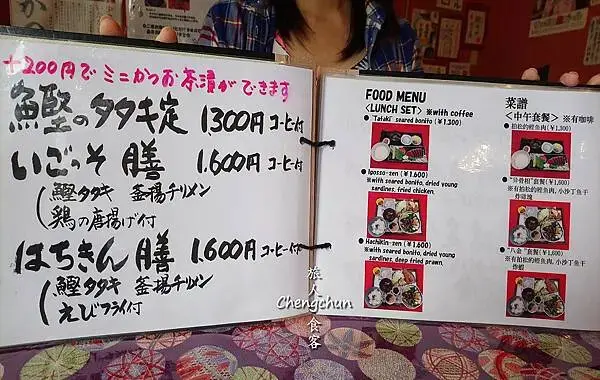 +200円でミニかつお茶漬ができます
鰹のタタキ定 1300円コーヒー付
いごっそ膳 1.600円コーヒー付
(鰹タタキ 釜揚チリメン
鶏の唐揚げ付
はちきん膳 1.600円コーヒー付
(鰹タタキ 釜揚チリメン
えびフライ付
FOOD MENU
<LUNCH SET> ※with coffee
●"Tataki" seared bonito (¥1,300)
Igosso-zen (¥1,600)
※with seared bonito, dried young
sardines, fried chicken.
●Hachikin-zen (¥1,600)
※with seared bonito, dried young
sardines, deep fried prawn.
菜譜
<中午套餐> ※有咖啡
●拍松的鲣鱼肉(¥1,300)
套餐(¥1,600)
※有拍松的鲣鱼肉,小沙丁鱼干
炸鸡塊
●"八金"套餐(¥1,600)
※有拍松的鲣鱼肉,小沙丁鱼干
炸蝦
旅人食客
Chengchun